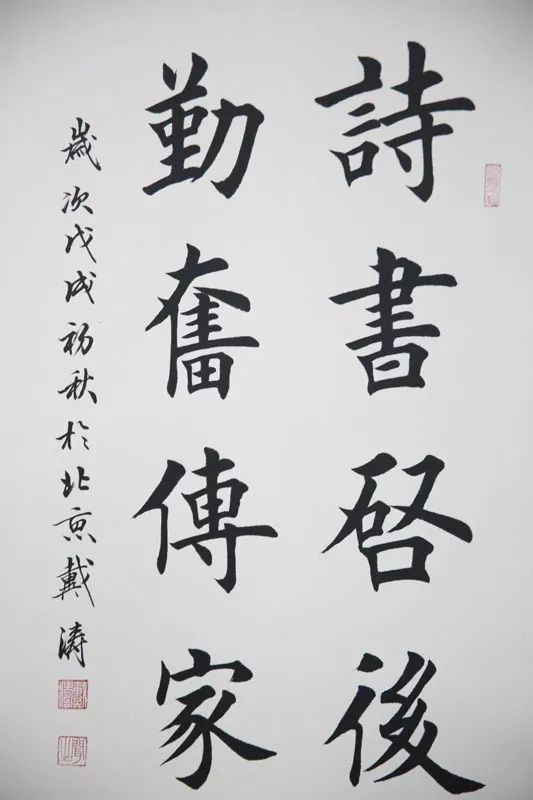 詩書啓後
勤奮傳家
歲次戊戌初秋於北京戴濤